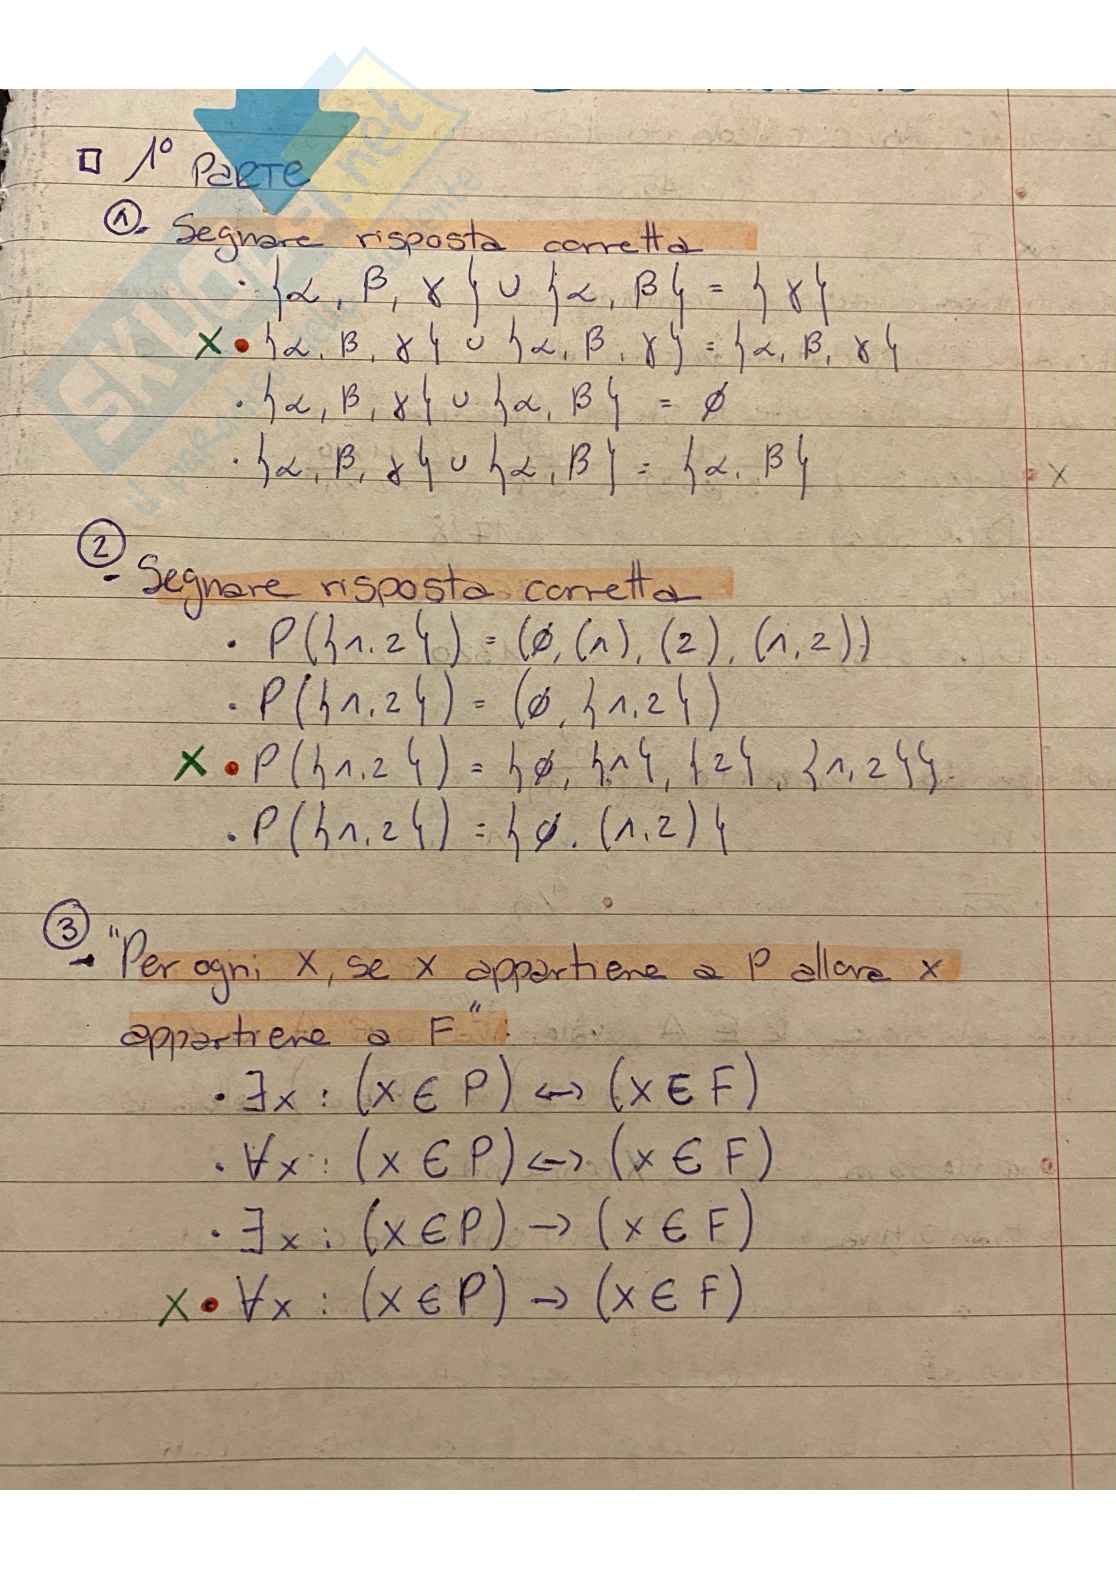 1° PARTE
1. Segnare risposta corretta
· {α, β, γ} ∪ {α, β} = {γ}
X • {α, β, γ} ∪ {α, β, γ} = {α, β, γ}
· {α, β, γ} ∪ {α, β} = ∅
· {α, β, γ} ∪ {α, β} = {α, β}
X
2. Segnare risposta corretta
· P({1,2}) = (∅, (1), (2), (1,2))
· P({1,2}) = (∅, {1,2})
X • P({1,2}) = {∅, {1}, {2}, {1,2}}
· P({1,2}) = {∅, (1,2)}
3. "Per ogni x, se x appartiene a P allora x
appartiene a F".
· ∃x : (x ∈ P) ↔ (x ∈ F)
· ∀x : (x ∈ P) ↔ (x ∈ F)
· ∃x : (x ∈ P) → (x ∈ F)
X • ∀x : (x ∈ P) → (x ∈ F)